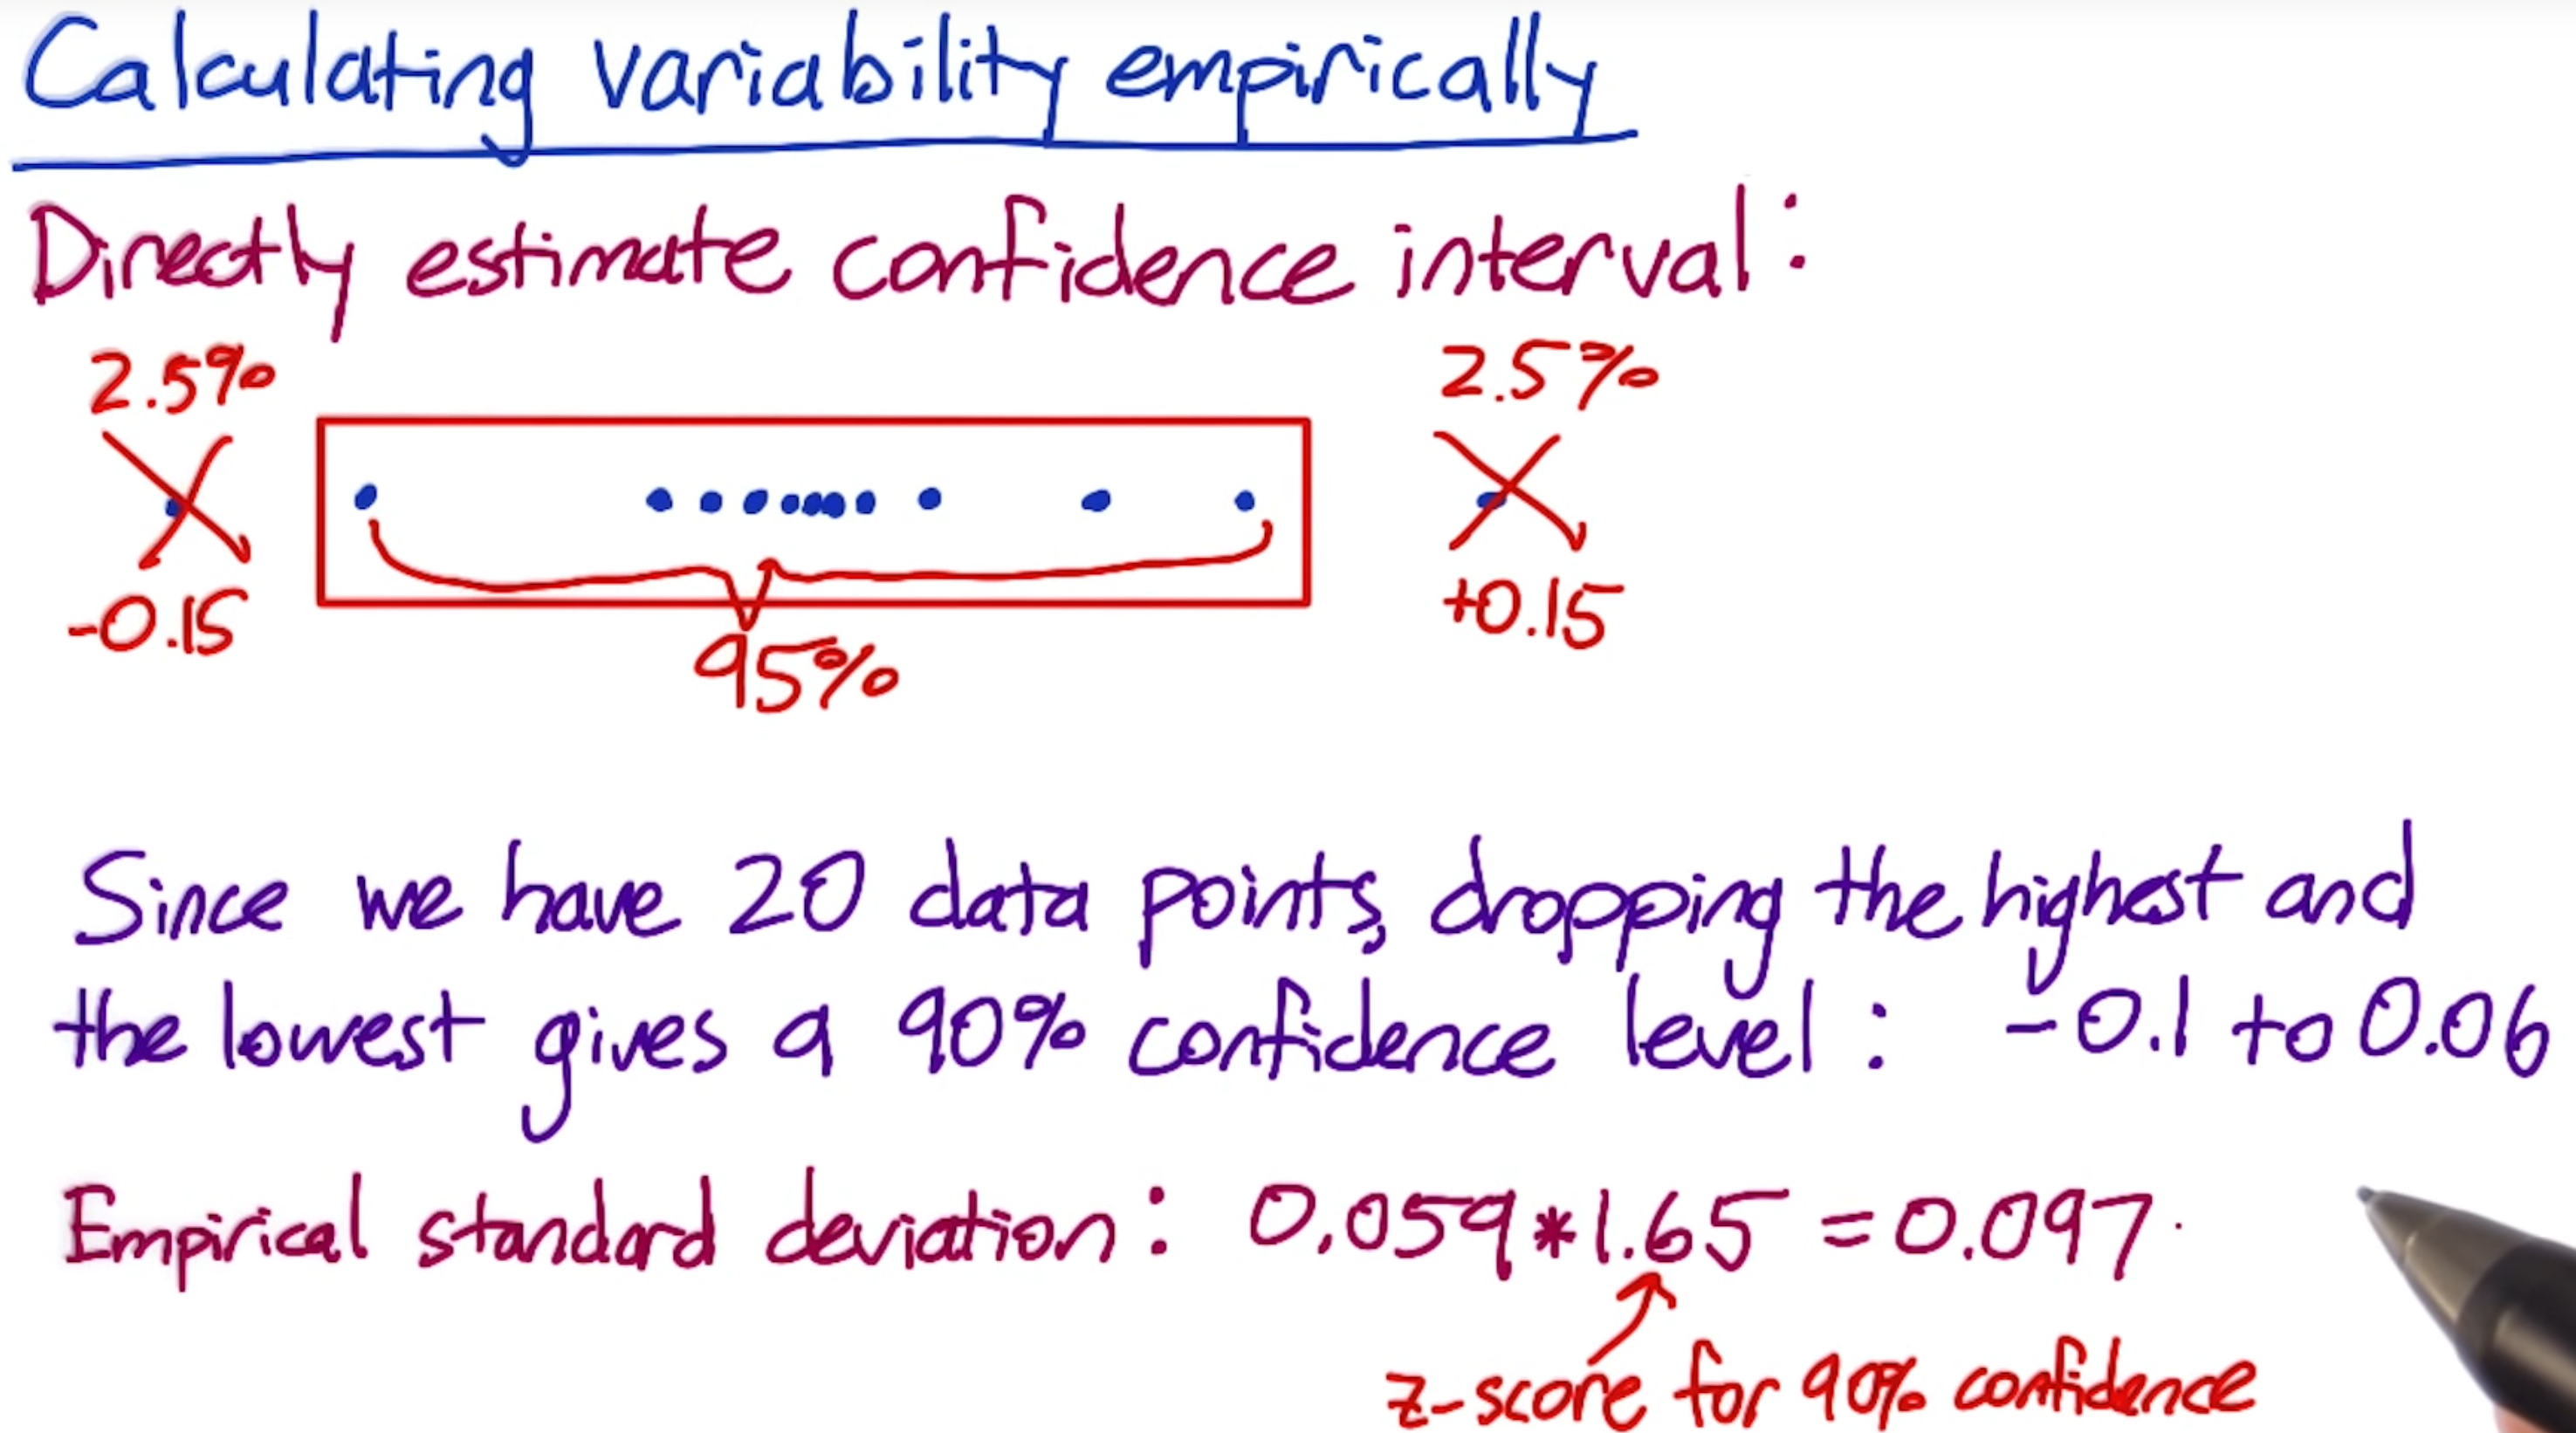 Calculating variability empirically
Directly estimate confidence interval:
2.5% 2.5%
-0.15 +0.15
95%
Since we have 20 data points, dropping the highest and
the lowest gives a 90% confidence level: -0.1 to 0.06
Empirical standard deviation: 0.059*1.65 = 0.097
z-score for 90% confidence